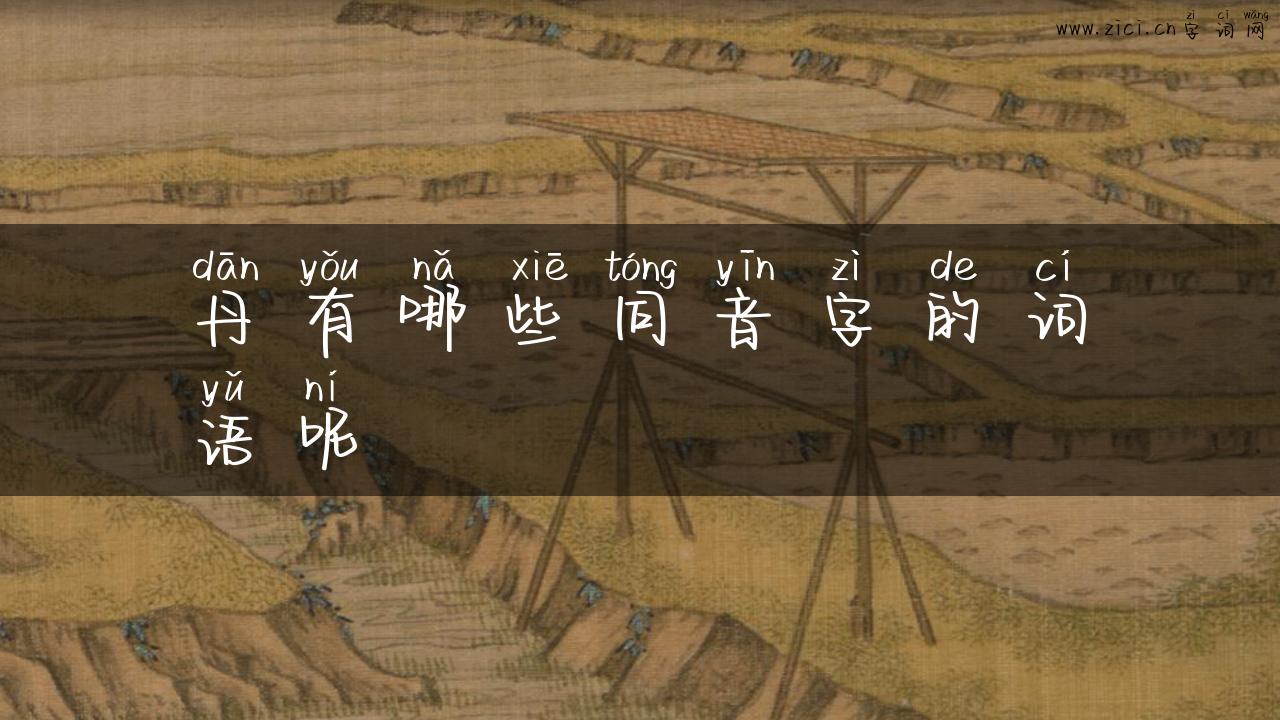 zì cí wǎng
www.zici.cn 字词网
dān yǒu nǎ xiē tóng yīn zì de cí
丹有哪些同音字的词
yǔ ní
语呢